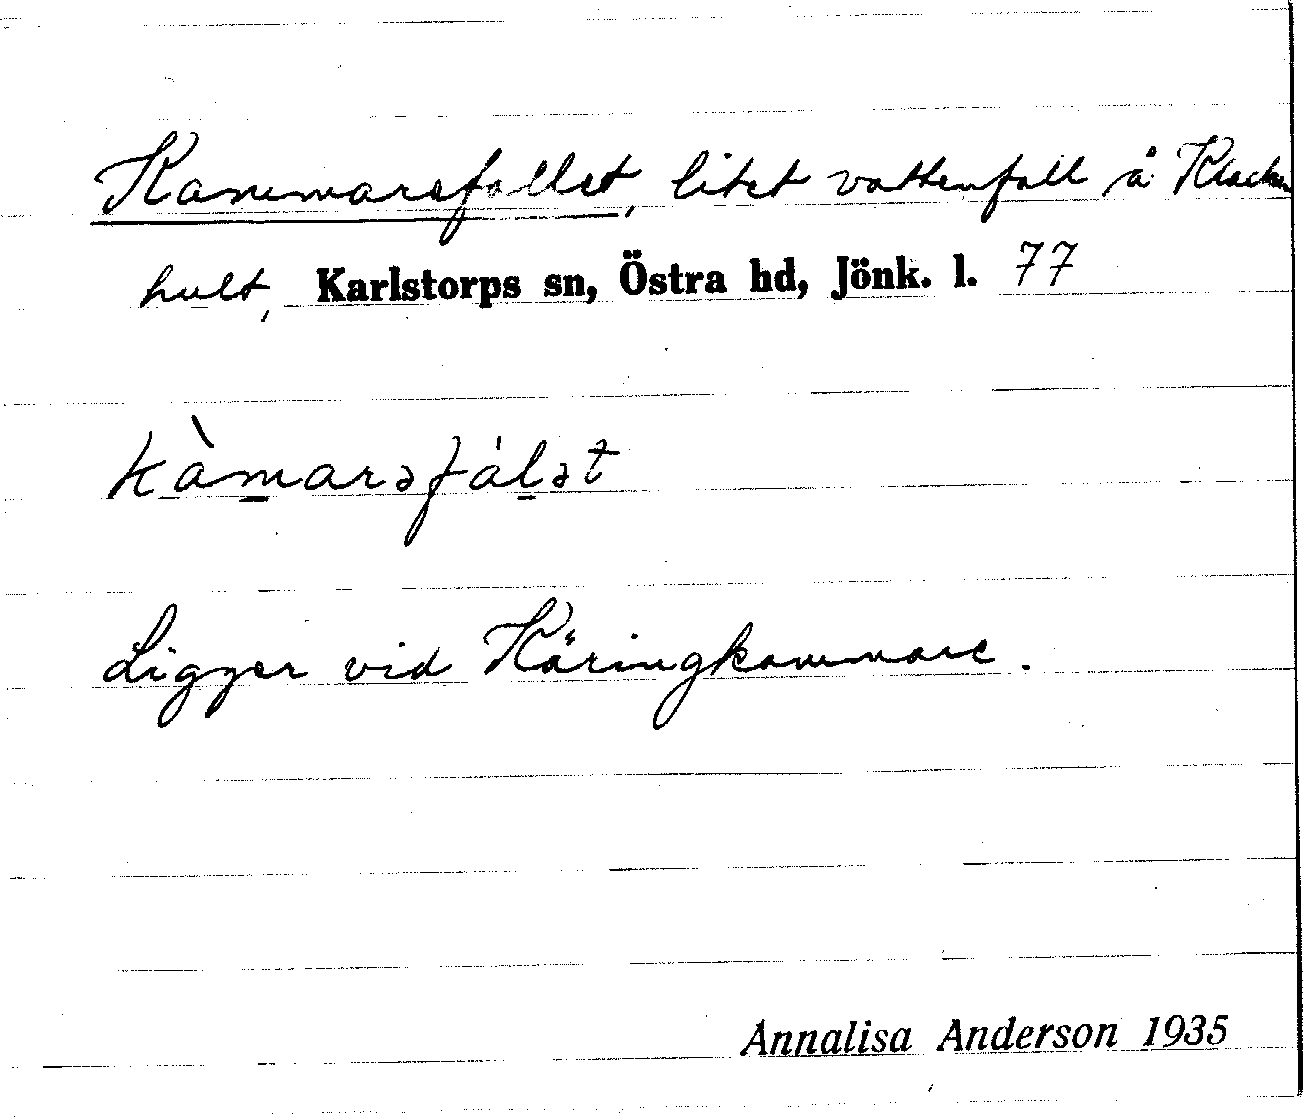 Kammarefallet, litet vattenfall å Klacken
hult, Karlstorps sn, Östra hd, Jönk. l. 77
kàmarəfálət
Ligger vid Käringkammare.
Annalisa Anderson 1935